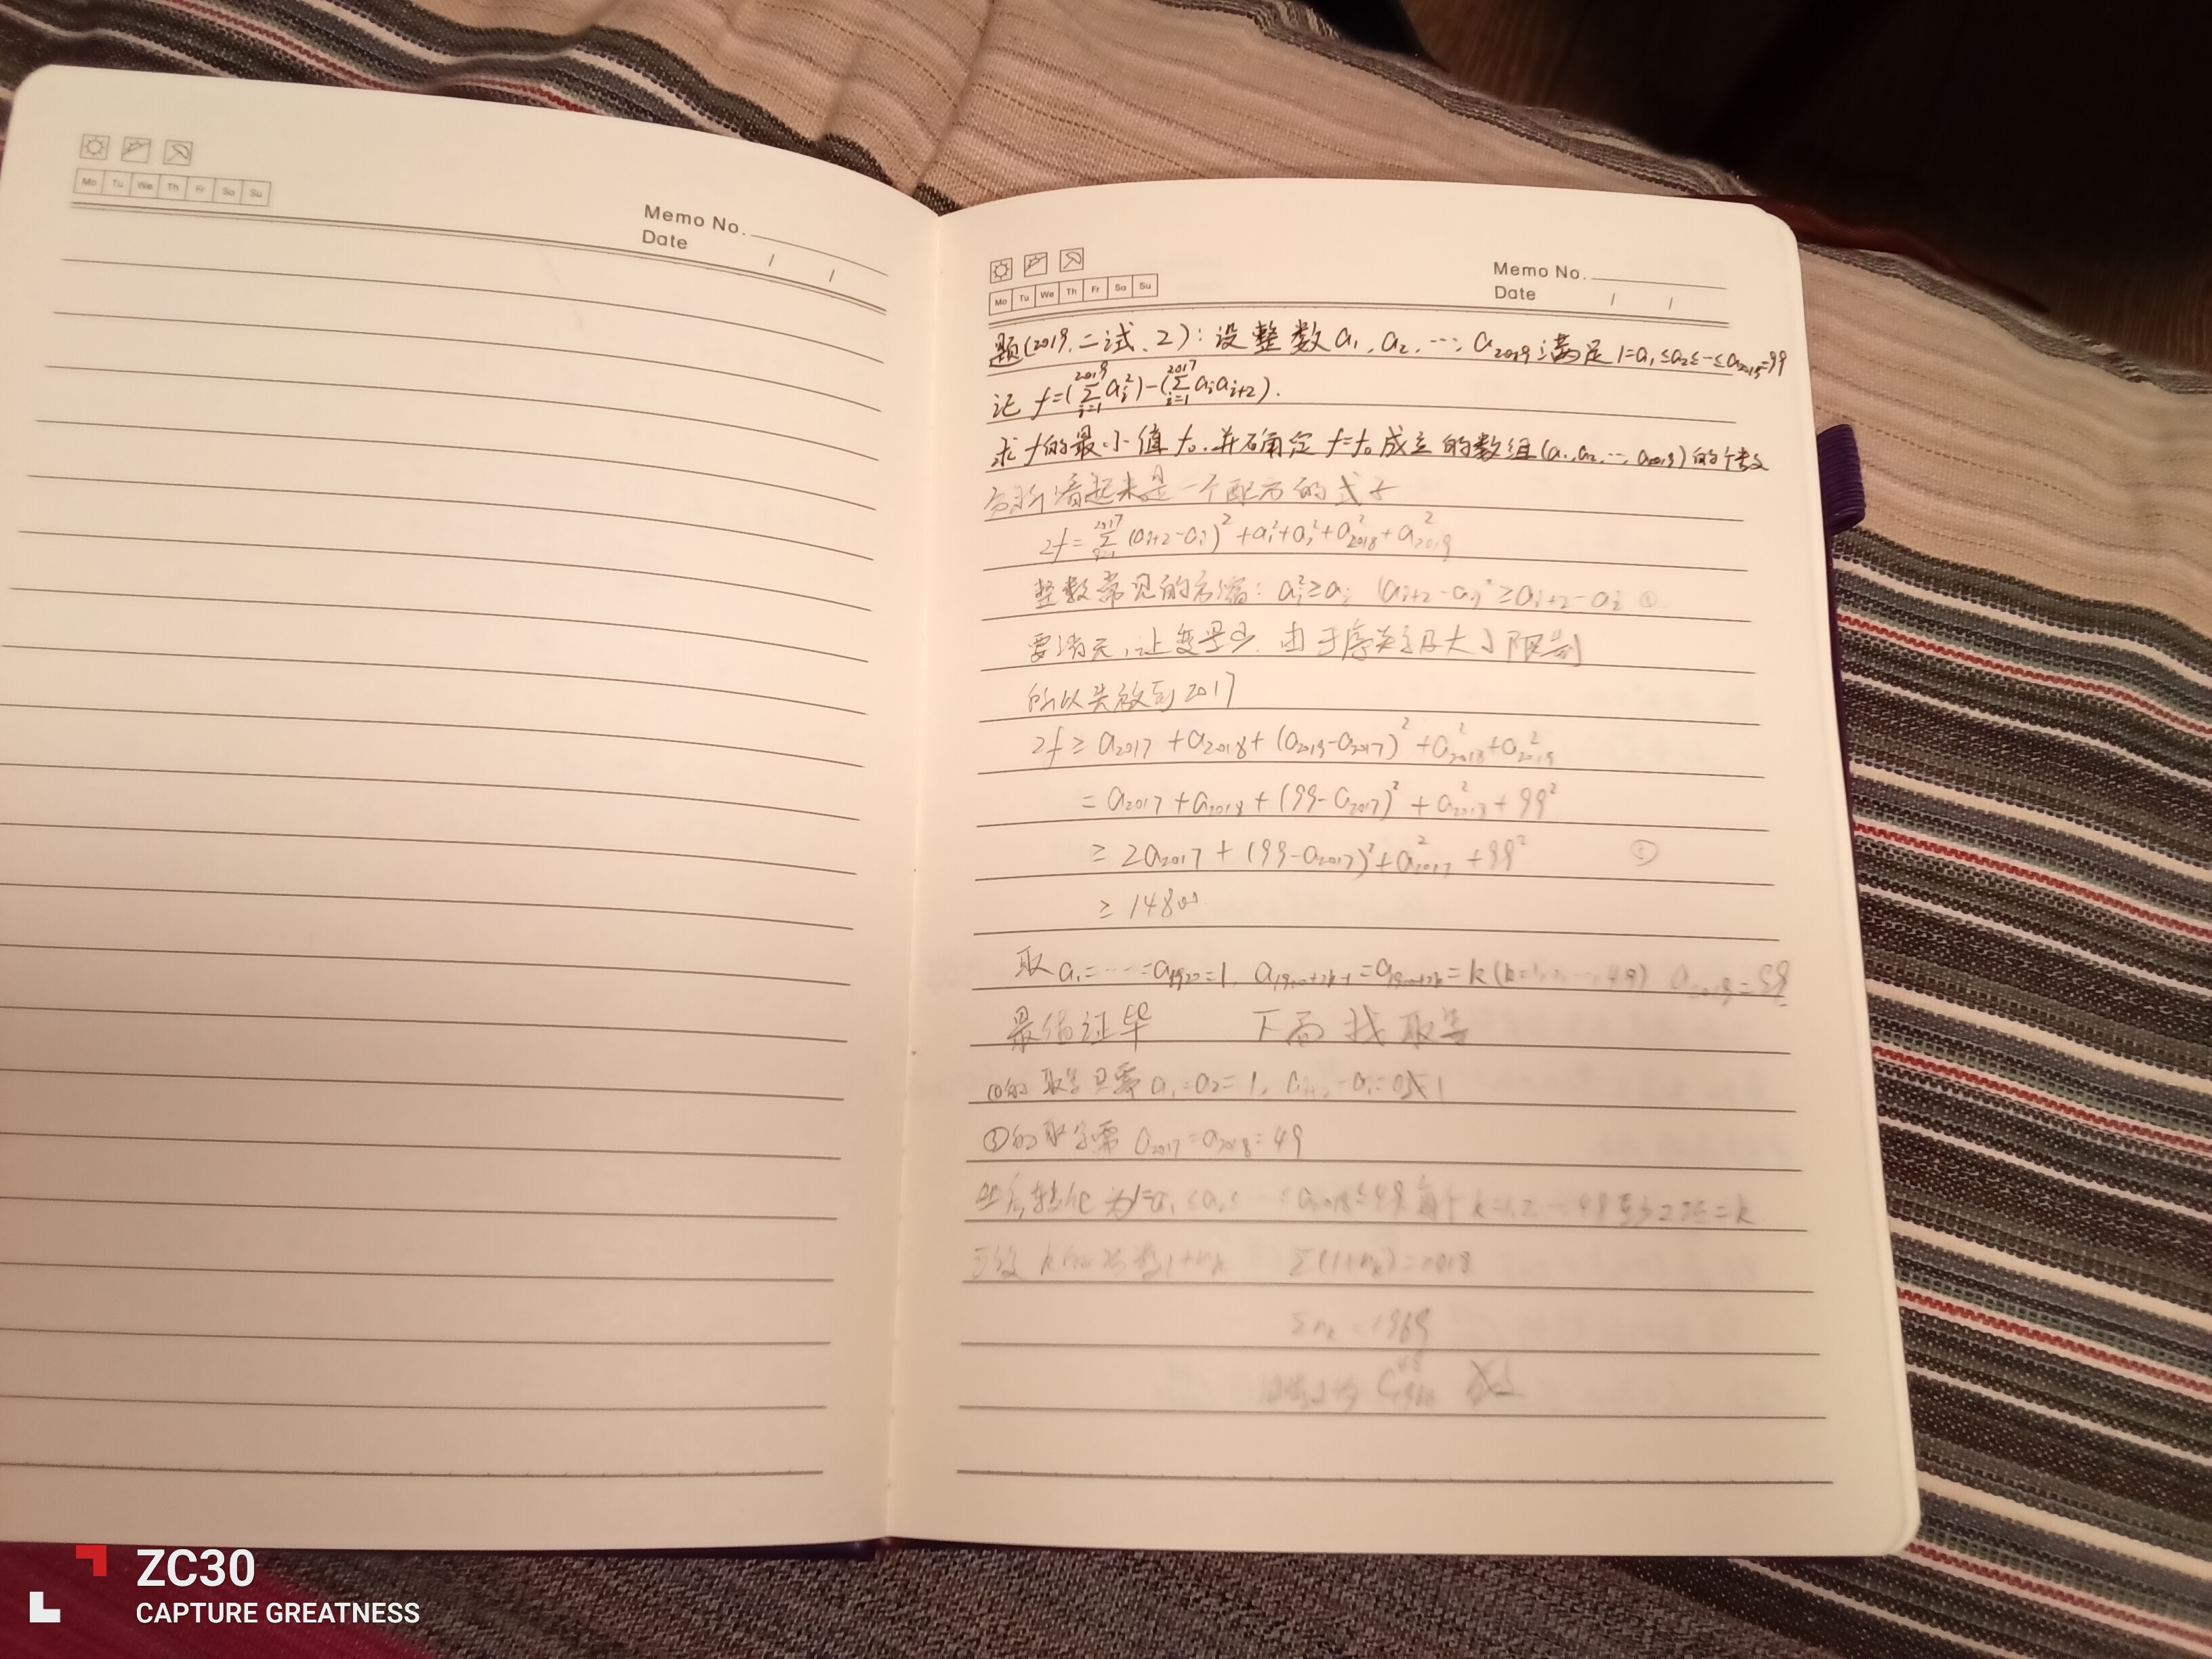 Mo Tu We Th Fr Sa Su
Memo No.
Date / /
Mo Tu We Th Fr Sa Su
Memo No.
Date / /
题(2019.二试.2):设整数a₁,a₂,…,a₂₀₁₉满足1=a₁≤a₂≤…≤a₂₀₁₉=99
记 f=(∑_{i=1}^{2019} a_i²)-(∑_{i=1}^{2017} a_i a_{i+2}).
求f的最小值f₀.并确定f=f₀成立的数组(a₁,a₂,…,a₂₀₁₉)的个数
分析:看起来是一个配方的式子
2f=∑_{i=1}^{2017}(a_{i+2}-a_i)²+a₁²+a₂²+a₂₀₁₈²+a₂₀₁₉²
整数常见的放缩:a_i²≥a_i (a_{i+2}-a_i)²≥a_{i+2}-a_i ①
要消元,让变量少.由于
所以先放到2017
2f≥a₂₀₁₇+a₂₀₁₈+(a₂₀₁₉-a₂₀₁₇)²+a₂₀₁₈²+a₂₀₁₉²
=a₂₀₁₇+a₂₀₁₈+(99-a₂₀₁₇)²+a₂₀₁₈²+99²
≥2a₂₀₁₇+(99-a₂₀₁₇)²+a₂₀₁₇²+99² ②
≥14800
取a₁=…=a₁₉₂₀=1, a_{1920+2k-1}=a_{1920+2k}=k(k=1,2,…,49) a₂₀₁₉=99
最值证毕 下面找取等
①的取等只需a₁=a₂=1, a_{i+2}-a_i=0或1
②的取等需a₂₀₁₇=a₂₀₁₈=49
转化为1=a₁≤a₂≤…≤a₂₀₁₈≤49 每个k=1,2…,49至少2项=k
1+n_k ∑(1+n_k)=2018
∑n_k=1969